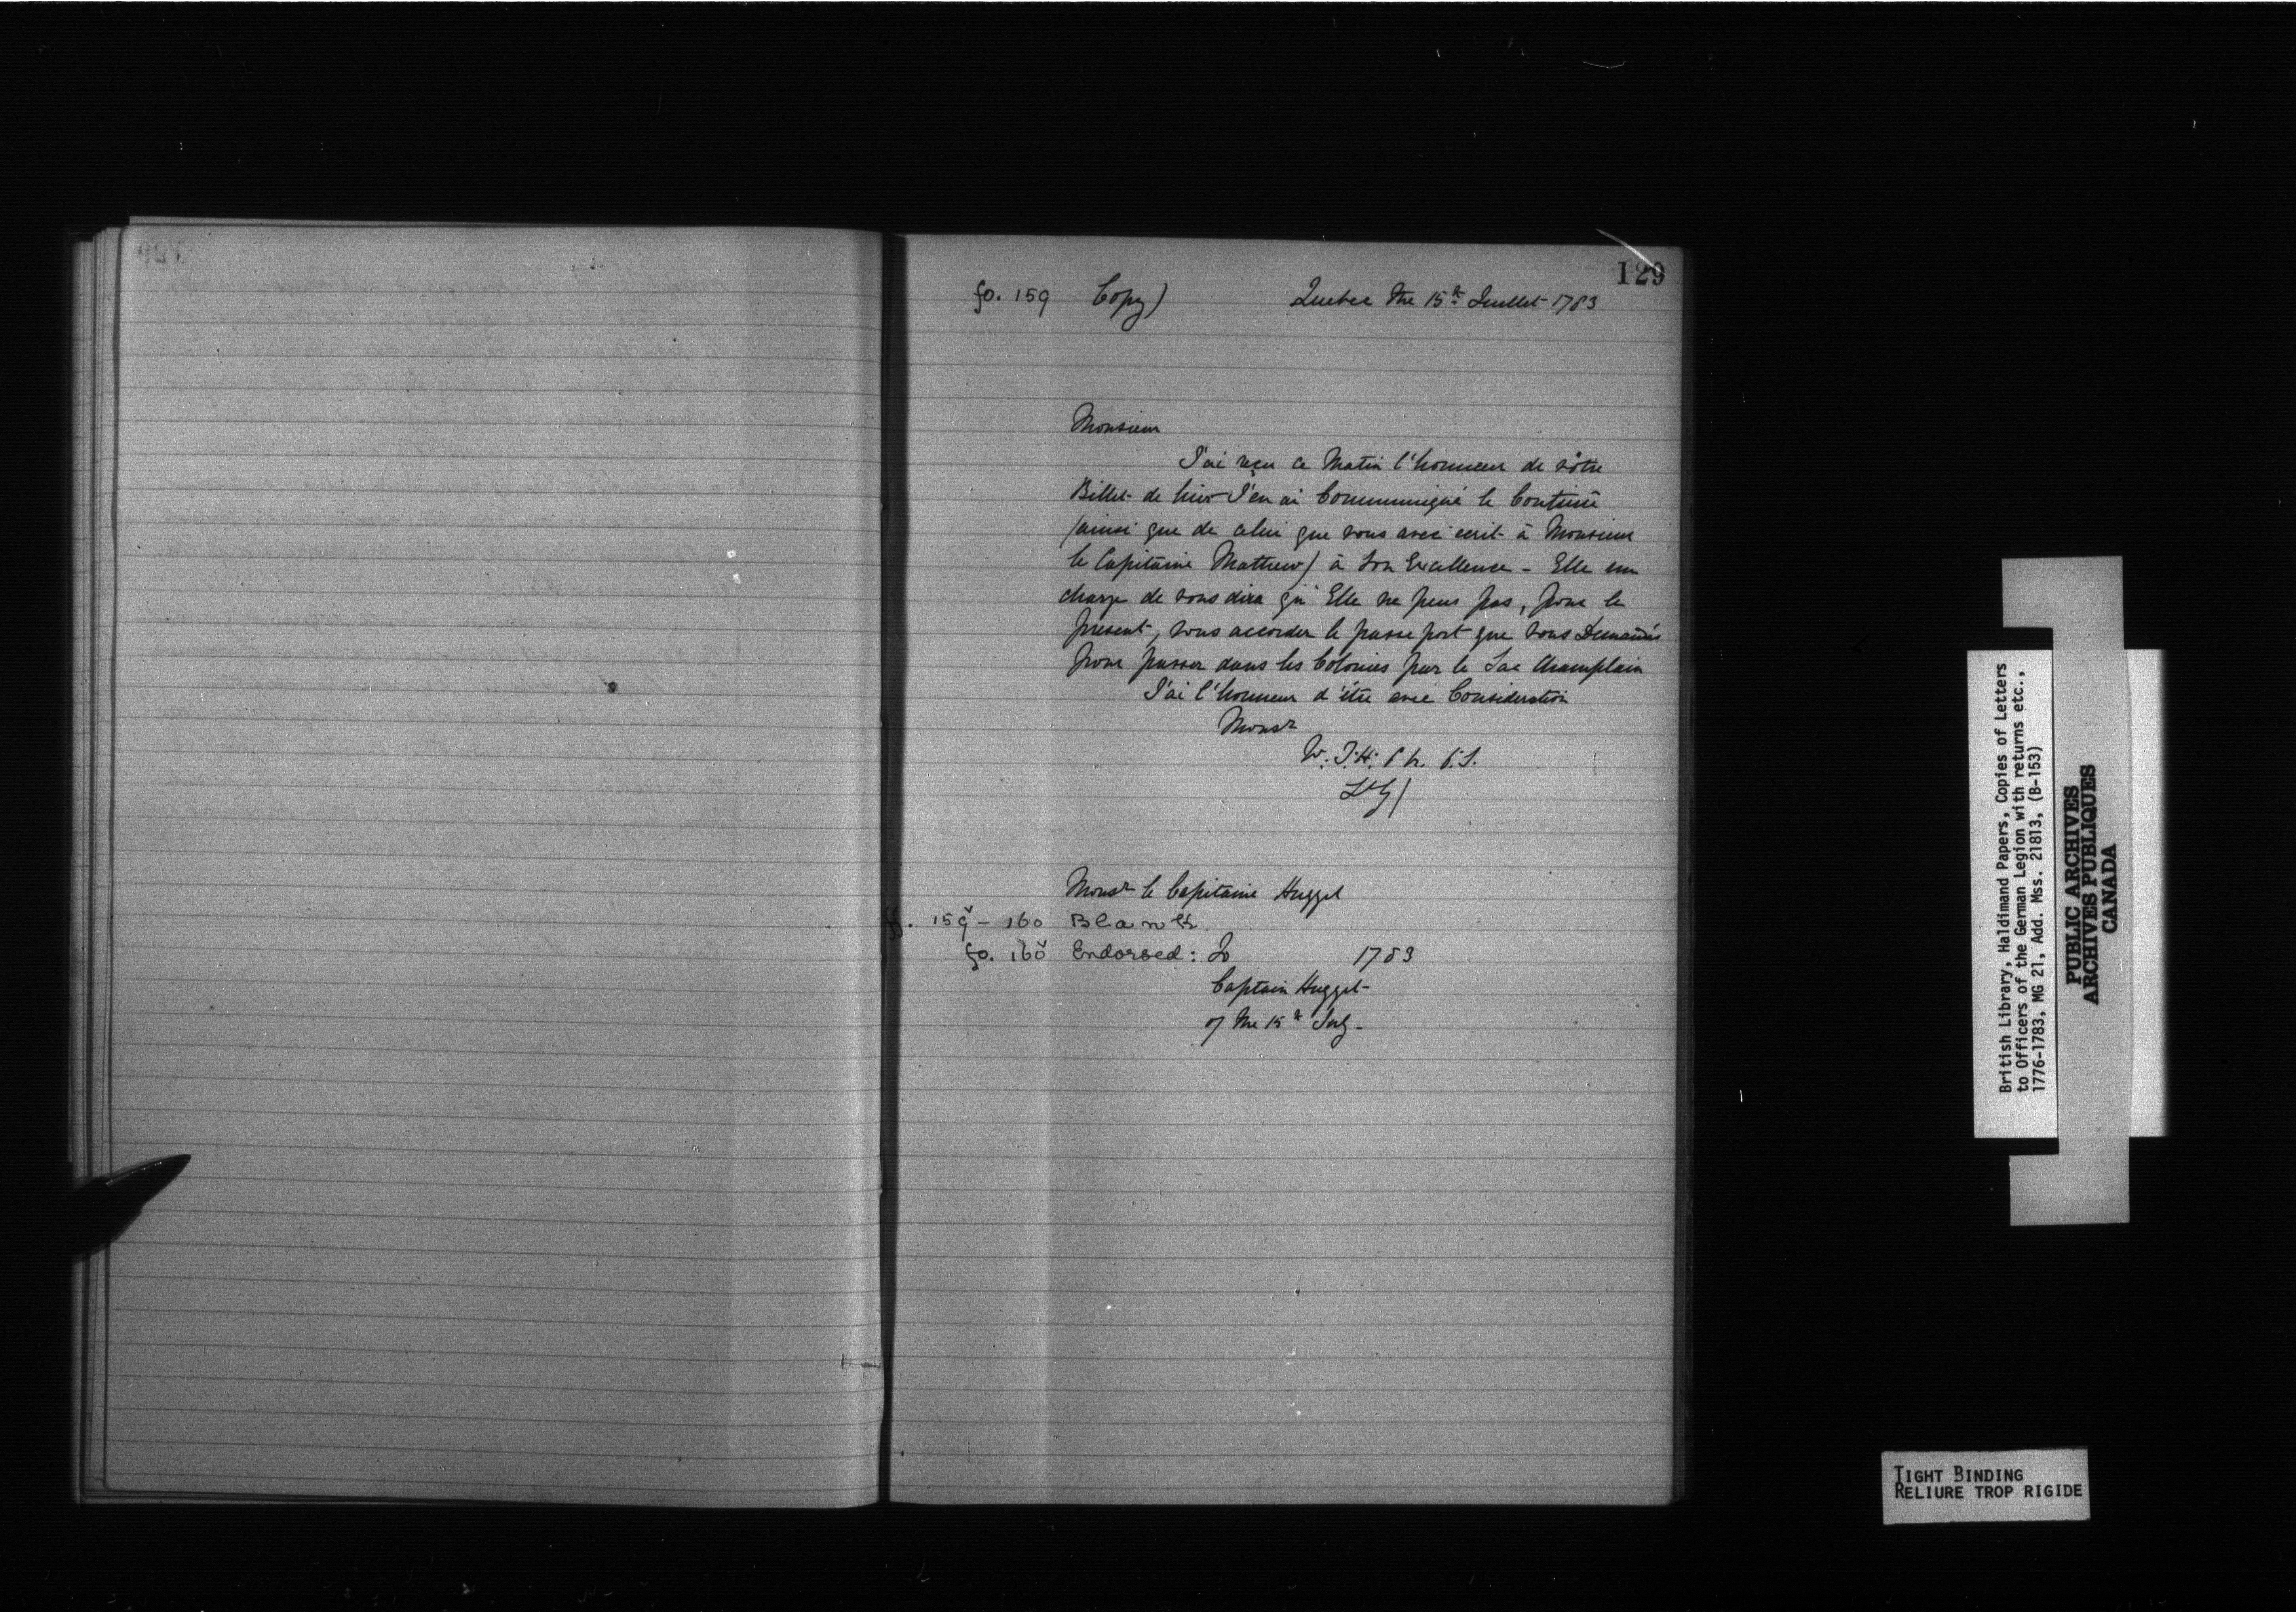 129
fo. 159 Copy) Quebec the 15th Juillet 1783
Monsieur
J'ai reçu ce Matin l'honneur de vôtre
Billet de hier J'en ai Communiqué le Contenu
(ainsi que de celui que vous avec ecrit à Monsieur
le Capitaine Mathew) à Son Excellence - Elle me
charge de vous dire qu' Elle ne peut pas, pour le
present, vous accorder le passe port que vous Demandés
pour passer dans les Colonies par le Lac Champlain
J'ai l'honneur d'être avec Consideration
Monsr
V. T. H.
Monsr le Capitaine Hugget
ff. 159v - 160 Blank.
fo. 160v Endorsed: To 1783
Captain Hugget
of the 15th July -
British Library, Haldimand Papers, Copies of Letters
to Officers of the German Legion with returns etc.,
1776-1783, MG 21, Add. Mss. 21813, (B-153)
PUBLIC ARCHIVES
ARCHIVES PUBLIQUES
CANADA
TIGHT BINDING
RELIURE TROP RIGIDE